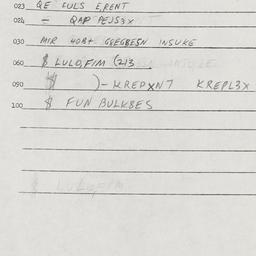 023 QE FULS E,RENT
024 = QAP PEJS3X
030 MIR HOBT GEEGBESN INSUKE
060 $ LULO,FIM (213
090 $ )- KREPXN7 KREPL3X
100 $ FUN BULKBES
$ LULO,FIM